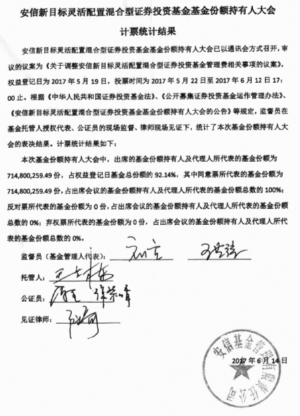 安信新目标灵活配置混合型证券投资基金基金份额持有人大会
计票统计结果
安信新目标灵活配置混合型证券投资基金基金份额持有人大会已以通讯会方式召开，审
议的议案为《关于调整安信新目标灵活配置混合型证券投资基金管理费相关事项的议案》。
权益登记日为 2017 年 5 月 19 日，投票时间为 2017 年 5 月 22 日至 2017 年 6 月 12 日 17：
00 止。根据《中华人民共和国证券投资基金法》、《公开募集证券投资基金运作管理办法》、
《安信新目标灵活配置混合型证券投资基金基金份额持有人大会的公告》等规定，监督员在
基金托管人授权代表、公证员的现场监督、律师现场见证下，统计了本次基金份额持有人大
会的表决结果。计票统计结果如下：
本次基金份额持有人大会中，出席的基金份额持有人及代理人所代表的基金份额为
714,800,259.49 份，占权益登记日基金总份额的 92.14%，其中同意票所代表的基金份额为
714,800,259.49 份，占出席会议的基金份额持有人及代理人所代表的基金份额总数的 100%；
反对票所代表的基金份额为 0 份，占出席会议的基金份额持有人及代理人所代表的基金份额
总数的 0%；弃权票所代表的基金份额为 0 份，占出席会议的基金份额持有人及代理人所代
表的基金份额总数的 0%。
监督员（基金管理人代表）：
托管人：
公证员：
见证律师：
安信基金管理有限责任公司
2017 年 6 月 14 日